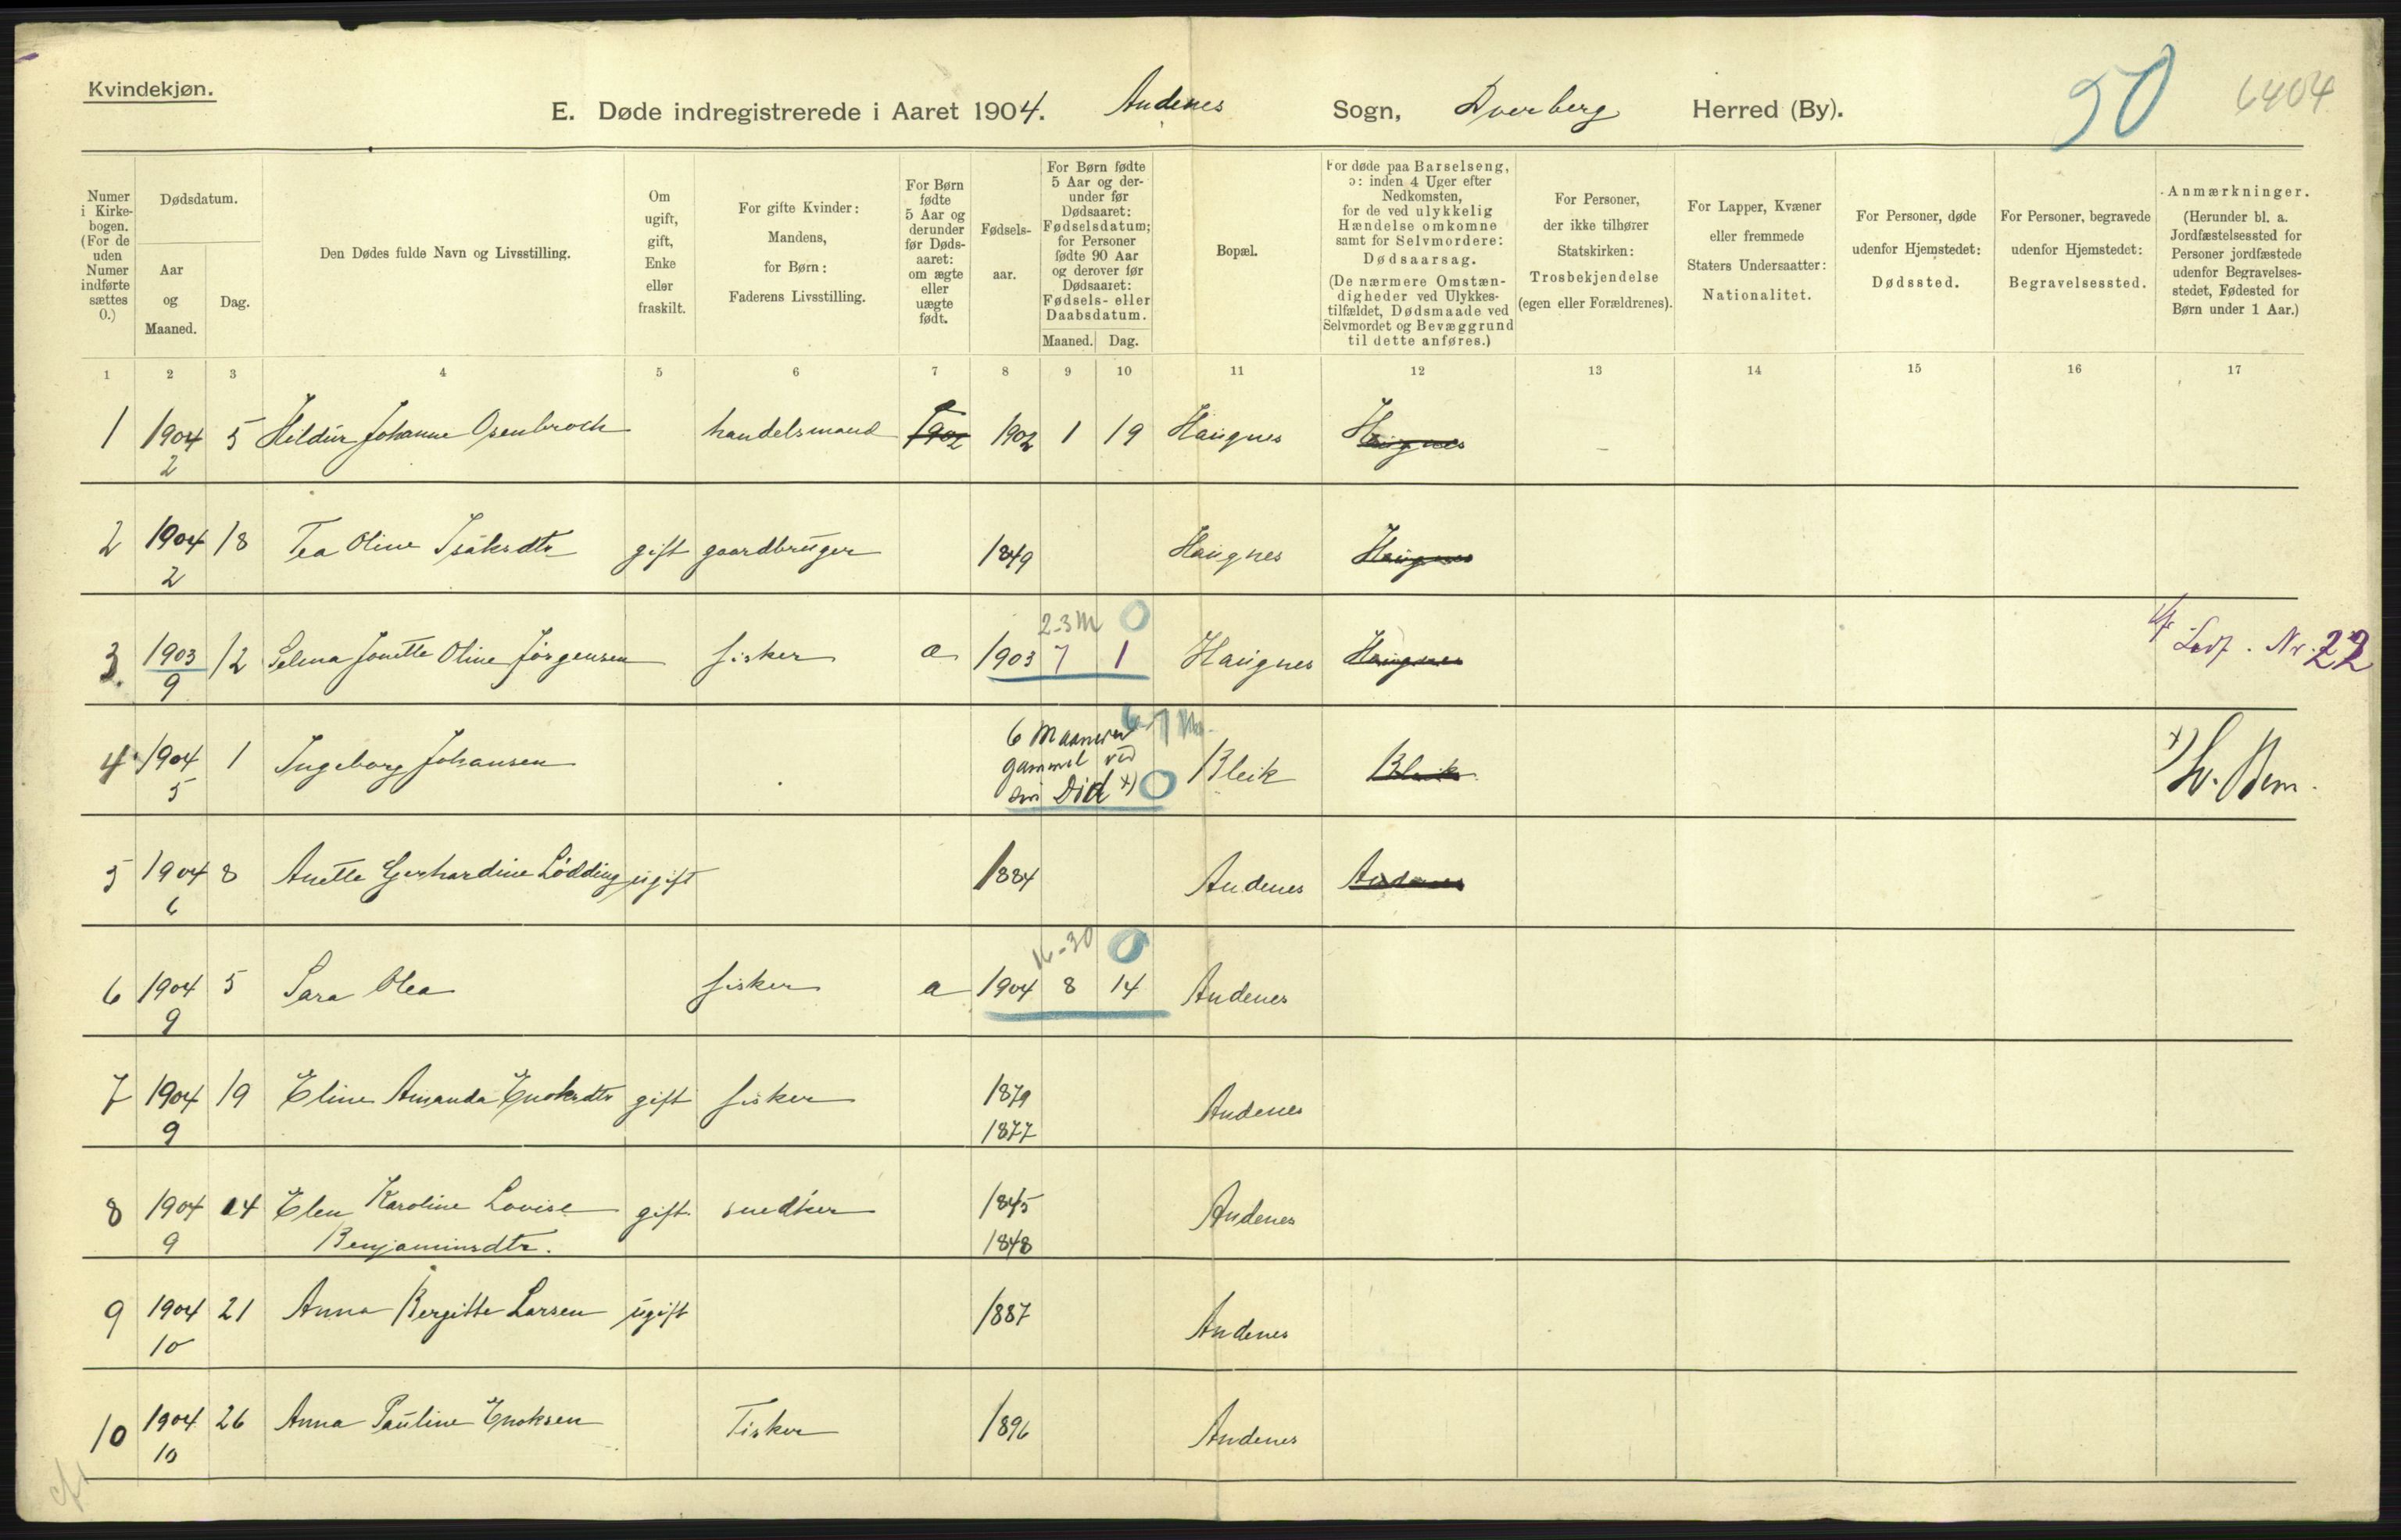 Kvindekjøn.
E. Døde indregistrerede i Aaret 1904. Andenes Sogn, Dverberg Herred (By).
50 6404
Numer i Kirkebogen. (For de uden Numer indførte sættes 0.)
Dødsdatum.
Aar og Maaned.
Dag.
Den Dødes fulde Navn og Livsstilling.
Om ugift, gift, Enke eller fraskilt.
For gifte Kvinder: Mandens, for Børn: Faderens Livsstilling.
For Børn fødte 5 Aar og derunder før Dødsaaret: om ægte eller uægte født.
Fødselsaar.
For Børn fødte 5 Aar og derunder før Dødsaaret: Fødselsdatum; for Personer fødte 90 Aar og derover før Dødsaaret: Fødsels- eller Daabsdatum.
Maaned. Dag.
Bopæl.
For døde paa Barselseng, ɔ: inden 4 Uger efter Nedkomsten, for de ved ulykkelig Hændelse omkomne samt for Selvmordere: Dødsaarsag. (De nærmere Omstændigheder ved Ulykkestilfældet, Dødsmaade ved Selvmordet og Bevæggrund til dette anføres.)
For Personer, der ikke tilhører Statskirken: Trosbekjendelse (egen eller Forældrenes).
For Lapper, Kvæner eller fremmede Staters Undersaatter: Nationalitet.
For Personer, døde udenfor Hjemstedet: Dødssted.
For Personer, begravede udenfor Hjemstedet: Begravelsessted.
Anmærkninger. (Herunder bl. a. Jordfæstelsessted for Personer jordfæstede udenfor Begravelsesstedet, Fødested for Børn under 1 Aar.)
1 2 3 4 5 6 7 8 9 10 11 12 13 14 15 16 17
1 1904 2 5 Hildur Johanne Osenbroch handelsmand 1902 1902 1 19 Haugnes Haugnes
2 1904 2 18 Tea Oline Isaksdtr gift gaardbruger 1849 Haugnes Haugnes
3 1903 9 12 Selma Jonette Oline Jørgensen fisker a 1903 7 1 2-3 M 0 Haugnes Haugnes Nr. 22
4 1904 5 1 Ingeborg Johansen 6 Maaneder gammel ved sin Död x) 6-7 M. 0 Bleik Bleik x)
5 1904 6 8 Anette Gerhardine Lödding ugift 1884 Andenes Andenes
6 1904 9 5 Sara Olea fisker a 1904 8 14 16-30 0 Andenes
7 1904 9 19 Eline Amanda Enoksdtr gift fisker 1879 1877 Andenes
8 1904 9 24 Elen Karoline Lovise Benjaminsdtr. gift snedker 1845 1848 Andenes
9 1904 10 21 Anna Bergitte Larsen ugift 1887 Andenes
10 1904 10 26 Anna Pauline Enoksen Fisker 1896 Andenes